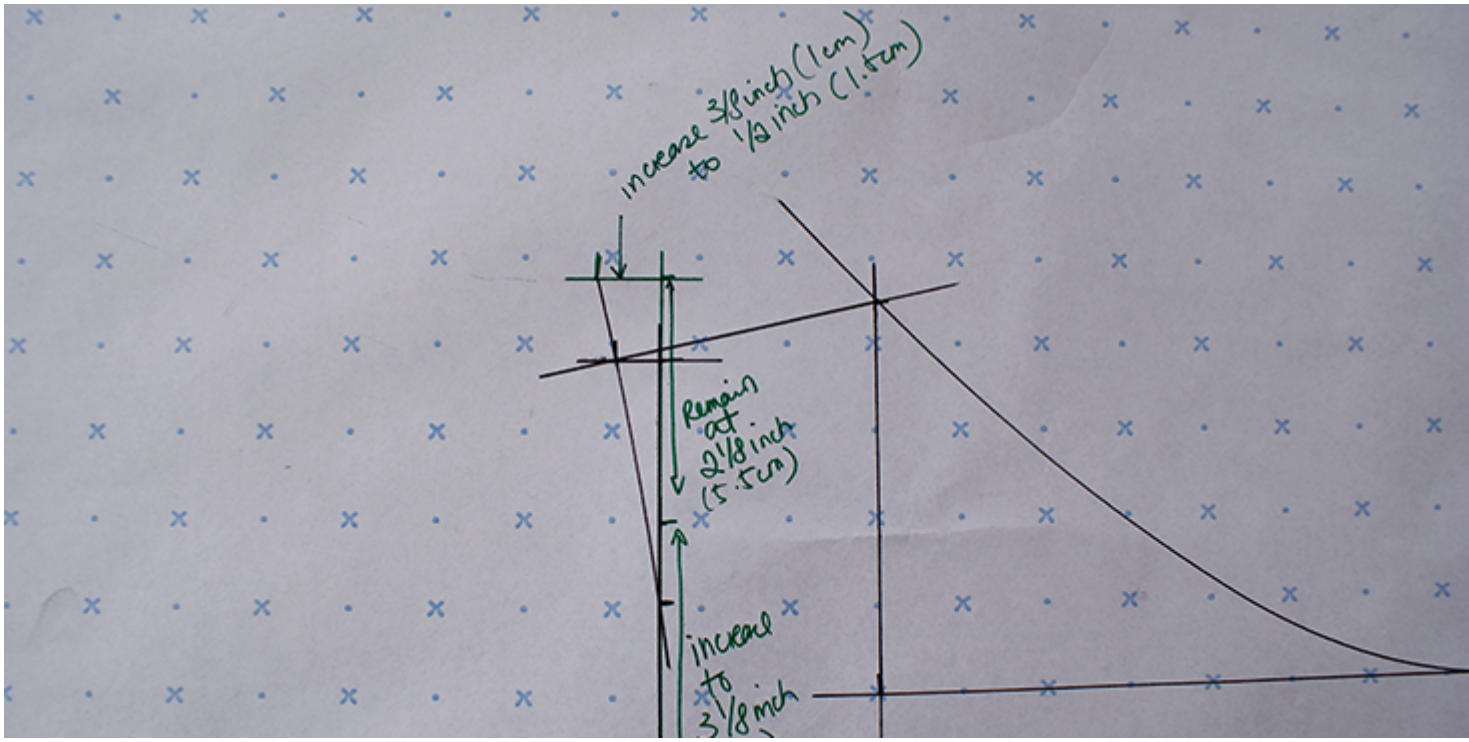 increase 3/8inch (1cm)
to 1/2 inch (1.5cm)
Remain
at
2 1/8 inch
(5.5cm)
increase
to
3 1/8 inch